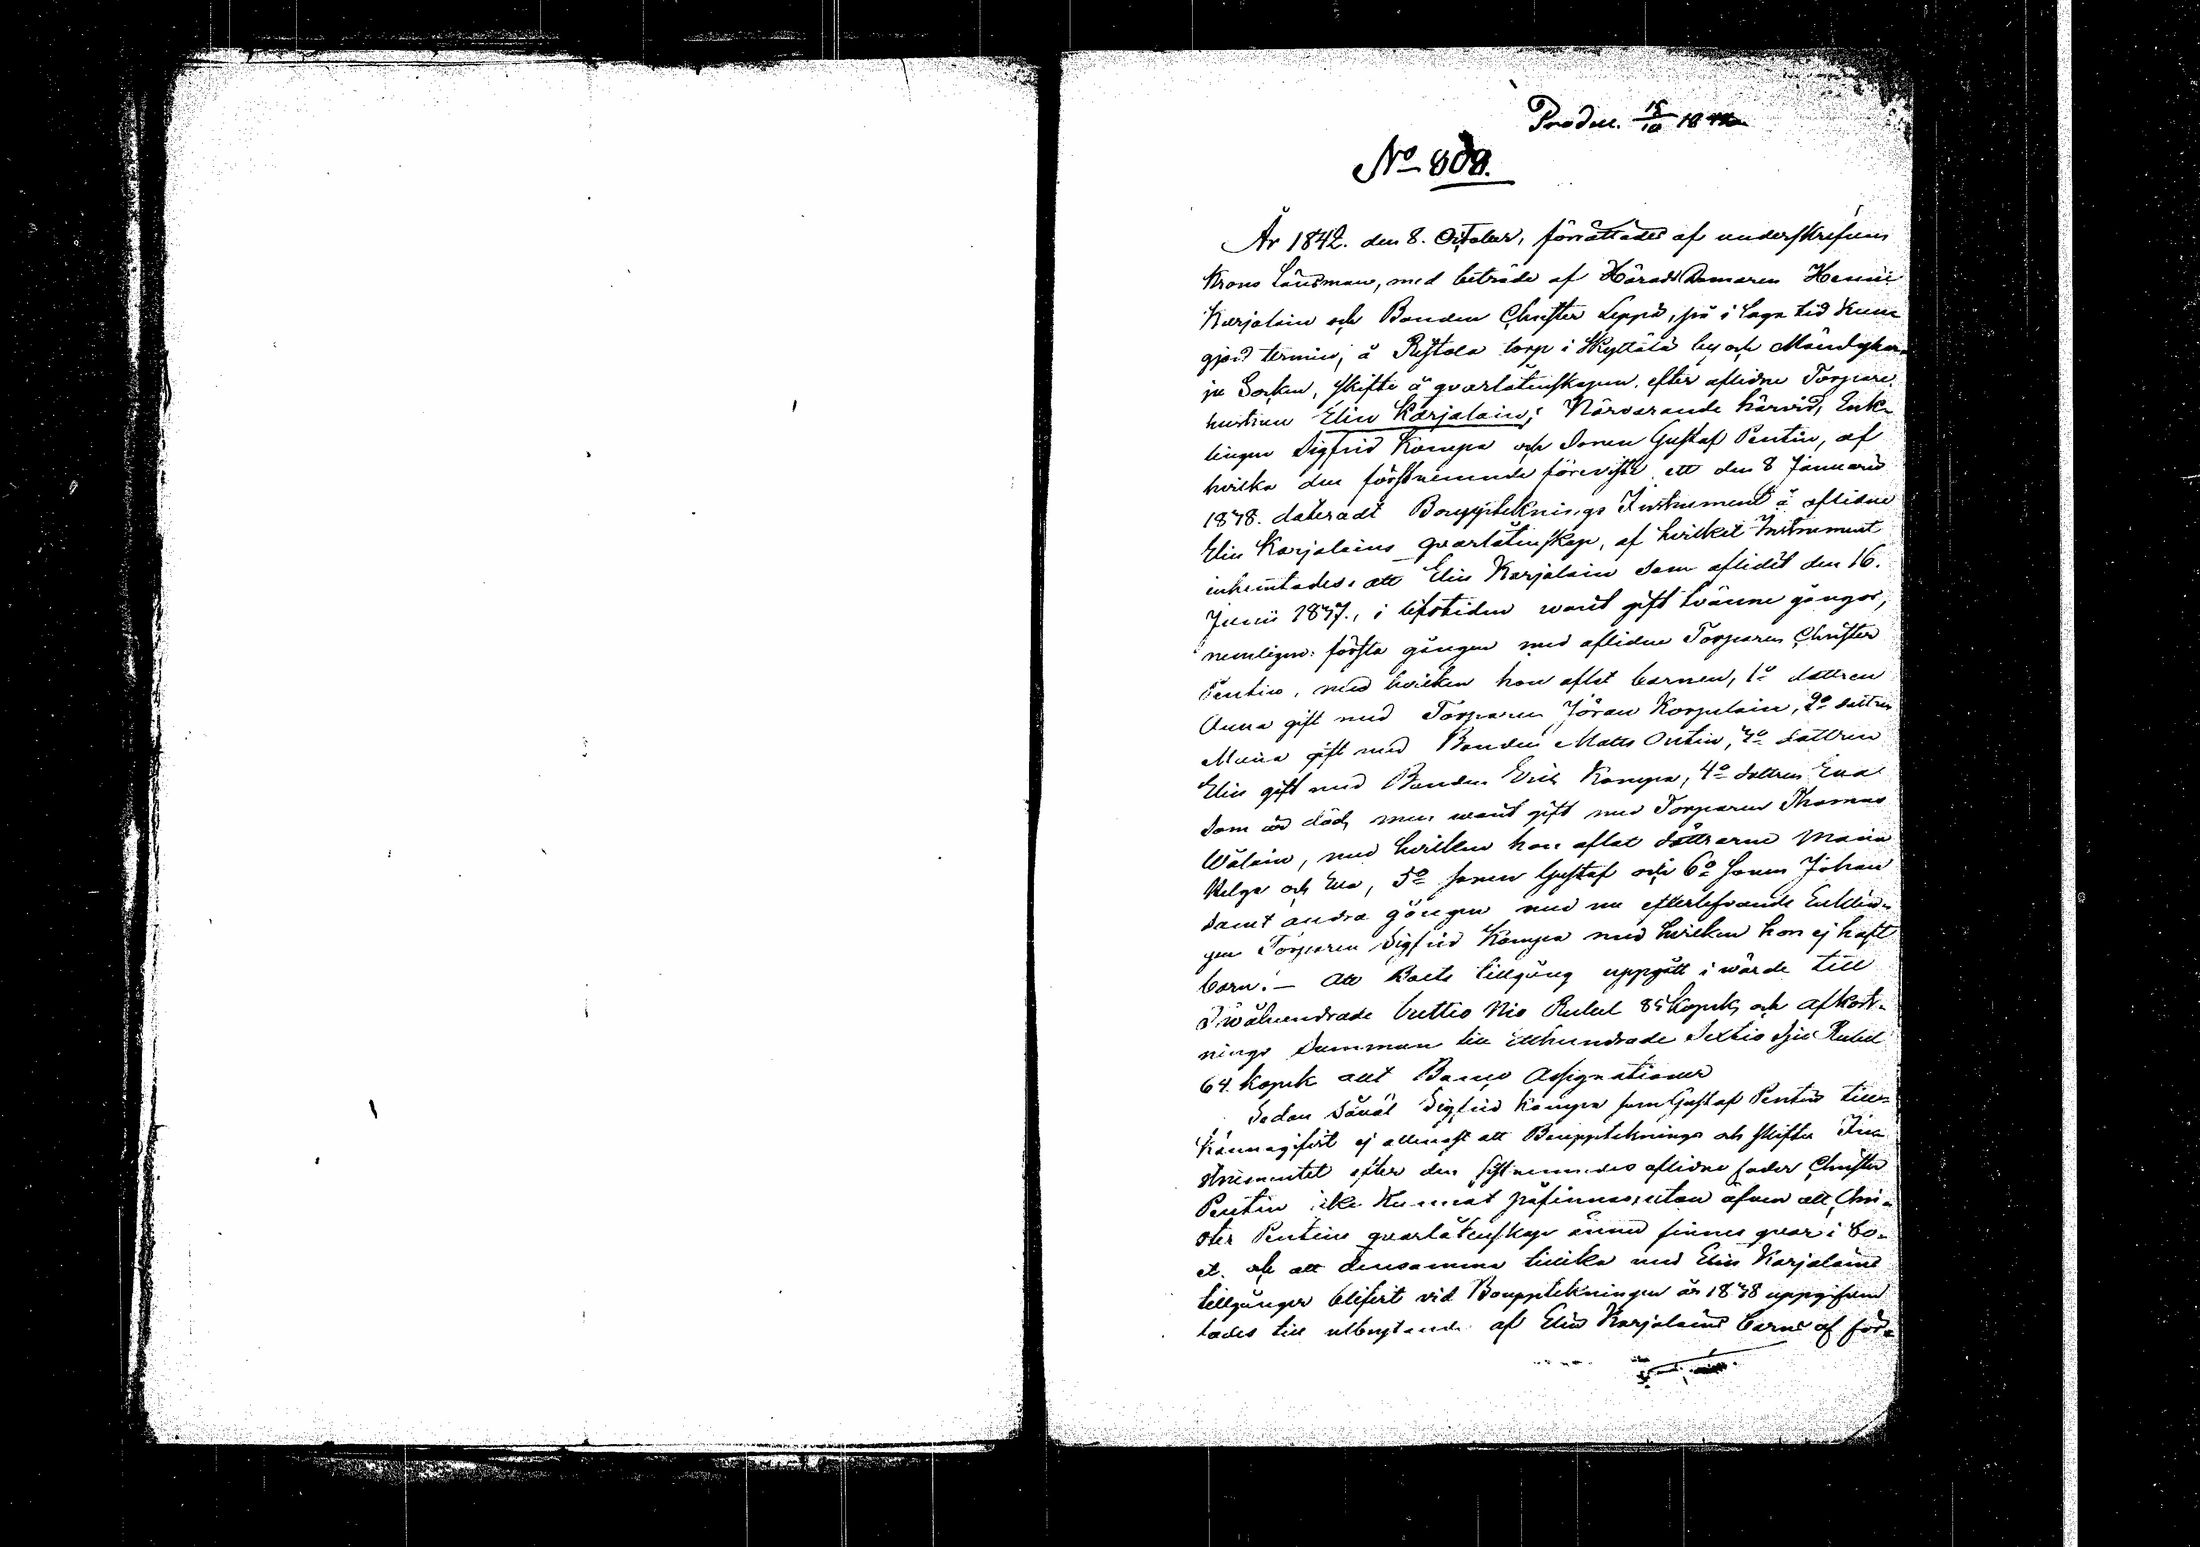 Produc. 15/10 1842
No 808.
År 1842. den 8. October, förrättades af underskrifven
Krono Länsman, med biträde af HäradsDomaren Henric
Karjalain och Bonden Christer Leppä, på i laga tid kun-
gjord termin, å Ristola torp i Skyttälä by och Mäntyhar-
ju Socken, skifte å qvarlåtenskapen efter aflidne Torpare
hustrun Elin Karjalain; Närvarande härvid, Enk-
lingen Sigfrid Kompa och Sonen Gustaf Pentin, af
hvilka den förstnemnde föreviste ett den 8 Januarii
1838. dateradt Bouppteknings Instrument å aflidne
Elin Karjalains qvarlåtenskap, af hvilket Instrument
inhemtades, att Elin Karjalain som aflidit den 16.
Junii 1837., i lifstiden varit gift tvänne gångor,
nemligen: första gången med aflidne Torparen Christer
Pentin, med hvilken hon aflat barnen, 1o dottren
Anna gift med Torparen Jöran Korpelain, 2o dottren
Maria gift med Bonden Matts Ontin, 3o dottren
Elin gift med Bonden Erik Kompa, 4o dottren Eva
som är död, men varit gift med Torparen Thomas
Wälain, med hvilken hon aflat döttrarne Maria
Helga och Eva, 5o sonen Gustaf och 6o sonen Johan
samt andra gången med nu efterlefvande Enklin-
gen Torparen Sigfrid Kompa med hvilken hon ej haft
barn. – Att Boets tillgång uppgått i värde till
Tvåhundrade trettio Nio Rubel 85 Kopek, och afkort-
nings Summan till etthundrade Sextio Sju Rubel
64. kopek allt Banco Assignationer
Sedan såväl Sigfrid Kompa som Gustaf Pentin till-
kännagifvit ej allenast att Bouppteknings och skiftes In-
strumentet efter den sistnemndes aflidne fader Christer
Pentin icke kunnat påfinnas, utan äfven att Chri-
ster Pentins qvarlåtenskap ännu finnes qvar i bo-
et. och att densamma tillika med Elin Karjalains
tillgångar blifvit vid Bouppteckningen år 1838 uppgifven
tades till utbrytande af Elin Karjalains barns af för-